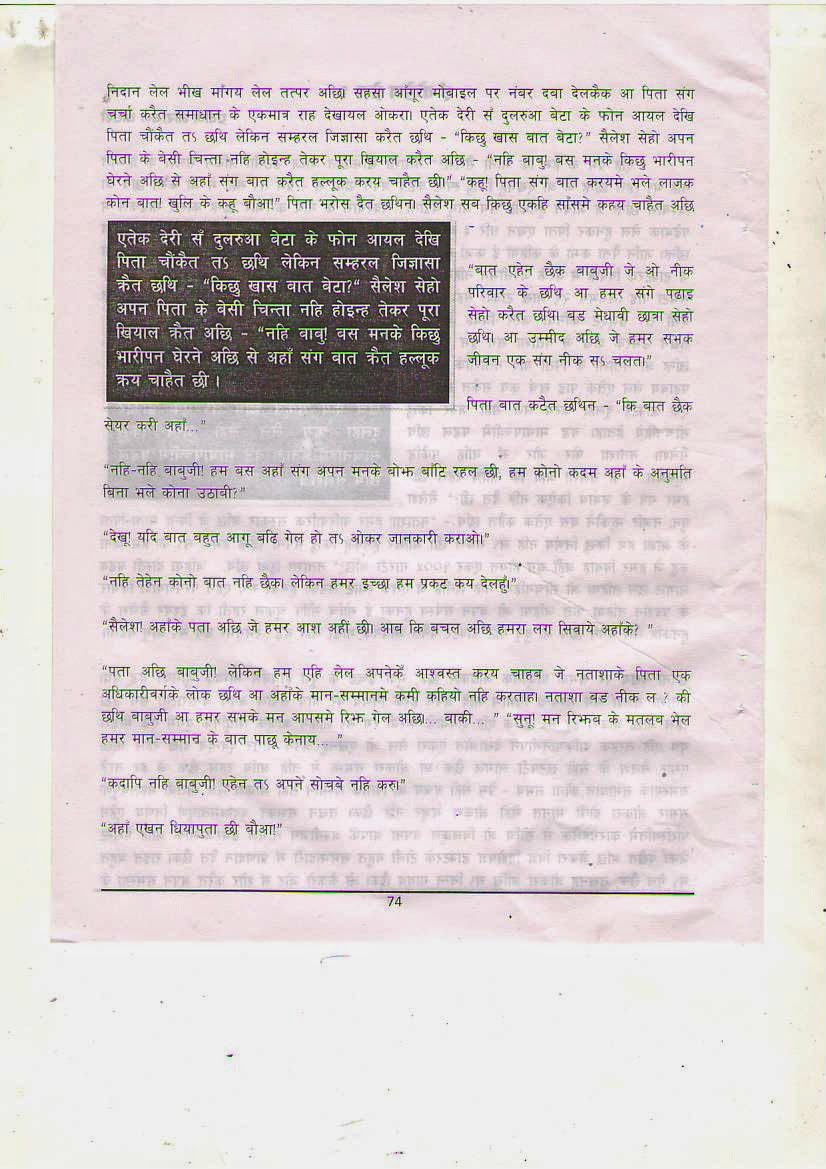 निदान लेल भीख माँगय लेल तत्पर अछि। सहसा आँगूर मोबाइल पर नंबर दबा देलकैक आ पिता संग
चर्चा करैत समाधान के एकमात्र राह देखायल ओकरा। एतेक देरी सँ दुलरुआ बेटा के फोन आयल देखि
पिता चौंकैत तऽ छथि लेकिन सम्हरल जिज्ञासा करैत छथि - “किछु खास बात बेटा?” सैलेश सेहो अपन
पिता के बेसी चिन्ता नहि होइन्ह तेकर पूरा खियाल करैत अछि - “नहि बाबु! बस मनके किछु भारीपन
घेरने अछि से अहाँ संग बात करैत हल्लूक करय चाहैत छी।” “कहू! पिता संग बात करयमे भले लाजक
कोन बात! खुलि के कहू बौआ!” पिता भरोस दैत छथिन। सैलेश सब किछु एकहि साँसमे कहय चाहैत अछि
-
एतेक देरी सँ दुलरुआ बेटा के फोन आयल देखि
पिता चौंकैत तऽ छथि लेकिन सम्हरल जिज्ञासा
क्रैत छथि - “किछु खास बात बेटा?“ सैलेश सेहो
अपन पिता के बेसी चिन्ता नहि होइन्ह तेकर पूरा
खियाल क्रैत अछि - “नहि बाबु! बस मनके किछु
भारीपन घेरने अछि से अहाँ संग बात क्रैत हल्लूक
क्रय चाहैत छी ।
“बात एहेन छैक बाबुजी जे ओ नीक
परिवार के छथि आ हमर संगे पढाइ
सेहो करैत छथि। बड मेधावी छात्रा सेहो
छथि। आ उम्मीद अछि जे हमर सभक
जीवन एक संग नीक सऽ चलत।”
पिता बात कटैत छथिन - “कि बात छैक
सेयर करी अहाँ...”
“नहि-नहि बाबुजी! हम बस अहाँ संग अपन मनके बोझ बाँटि रहल छी, हम कोनो कदम अहाँ के अनुमति
बिना भले कोना उठाबी?”
“देखू! यदि बात बहुत आगू बढि गेल हो तऽ ओकर जानकारी कराओ।”
“नहि तेहेन कोनो बात नहि छैक। लेकिन हमर इच्छा हम प्रकट कय देलहुँ।”
“सैलेश! अहाँके पता अछि जे हमर आश अहीं छी। आब कि बचल अछि हमरा लग सिवाये अहाँके? ”
“पता अछि बाबुजी! लेकिन हम एहि लेल अपनेकें आश्वस्त करय चाहब जे नताशाके पिता एक
अधिकारीवर्गके लोक छथि आ अहाँके मान-सम्मानमे कमी कहियो नहि करताह। नताशा बड नीक ल ? की
छथि बाबुजी आ हमर सभके मन आपसमे रिझ गेल अछि।... बाकी... ” “सुनू! मन रिझब के मतलब भेल
हमर मान-सम्मान के बात पाछू केनाय.... ”
“कदापि नहि बाबुजी! एहेन तऽ अपने सोचबे नहि करु।”
“अहाँ एखन धियापुता छी बौआ!”
74